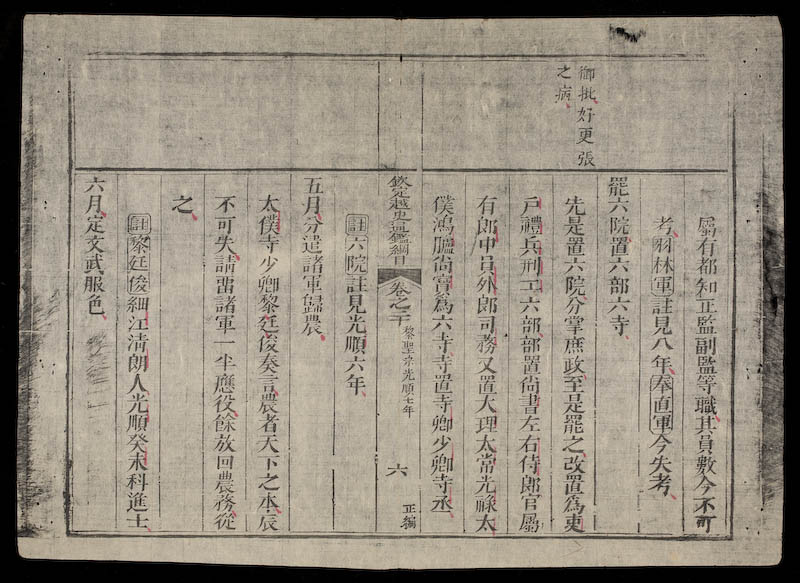 御批好更張
之病
屬有都知正監副監等職其員數今不可
考羽林軍註見八年奉直軍今失考
罷六院置六部六寺
先是置六院分掌庶政至是罷之改置爲吏
戶禮兵刑工六部部置尚書左右侍郎官屬
有郎中員外郎司務又置大理太常光祿太
僕鴻臚尚寶爲六寺寺置寺卿少卿寺丞
欽定越史通鑑綱目 卷之二十 黎聖宗光順七年 六 正編
註六院註見光順六年
五月分遣諸軍歸農
太僕寺少卿黎廷俊奏言農者天下之本辰
不可失請畱諸軍一半應役餘放回農務從
之
註黎廷俊細江淸朗人光順癸未科進士
六月定文武服色